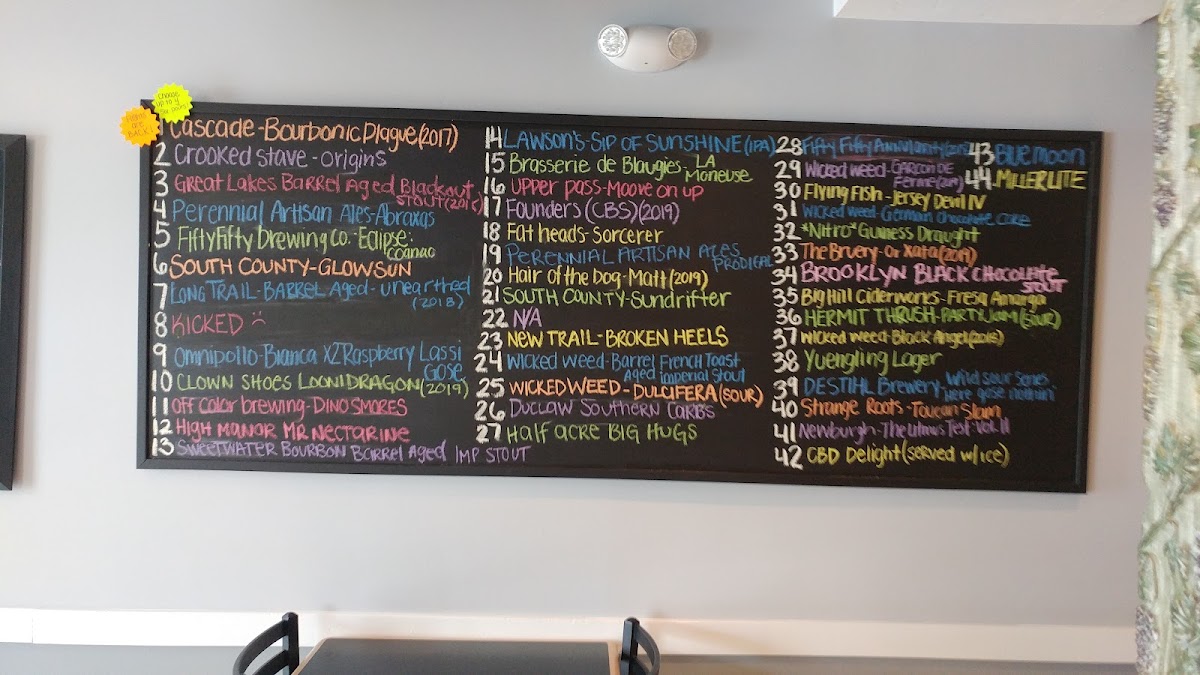 Flights are BACK!
Choose up to 4
1 Cascade-Bourbonic Plague (2017)
2 Crooked Stave-origins
3 Great Lakes Barrel Aged Blackout
STOUT
4 Perennial Artisan Ales-Abraxas
5 FiftyFifty Brewing Co.-Eclipse:
cognac
6 SOUTH COUNTY-GLOWSUN
7 LONG TRAIL-BARREL Aged-unearthed
(2018)
8 KICKED
9 Omnipollo-Bianca XZ Raspberry Lassi
GOSE
10 CLOWN SHOES LOONIDRAGON (2019)
11 Off Color brewing-DINO SMORES
12 High MANOR MR NECTARINE
13 SWEETWATER BOURBON Barrel Aged IMP STOUT
14 LAWSON'S-SIP OF SUNSHINE (IPA)
15 Brasserie de Blaugies-LA
Moneuse
16 UPPER PASS-Moove on up
17 Founders (CBS) (2019)
18 Fat heads-Sorcerer
19 PERENNIAL ARTISAN ALES
PRODIGAL
20 Hair of the Dog-Matt (2019)
21 SOUTH COUNTY-Sundrifter
22 N/A
23 NEW TRAIL-BROKEN HEELS
24 WICKED WEED-Barrel French Toast
Aged imperial Stout
25 WICKED WEED-DULCIFERA (SOUR)
26 DUCLAW Southern CARBS
27 HALF ACRE BIG HUGS
28 Fifty Fifty
29 Wicked Weed-GARCON DE
Ferme
30 FLYING FISH-Jersey Devil IV
31 WICKED WEED-German Chocolate Cake
32 *Nitro* Guiness Draught
33 The Bruery-Or Xata (2019)
34 BROOKLYN BLACK CHOCOLATE
STOUT
35 Big Hill Ciderworks-Fresa Amarga
36 HERMIT THRUSH-PARTY JAM (SOUR)
37 WICKED WEED-Black Angel
38 Yuengling Lager
39 DESTIHL Brewery-Wild Sour Series
Here gose nothin'
40 Strange Roots-Toucan Slam
41 Newburgh-The Litmus Test: Vol. II
42 CBD Delight (served w/ice)
43 BLUE MOON
44 MILLER LITE